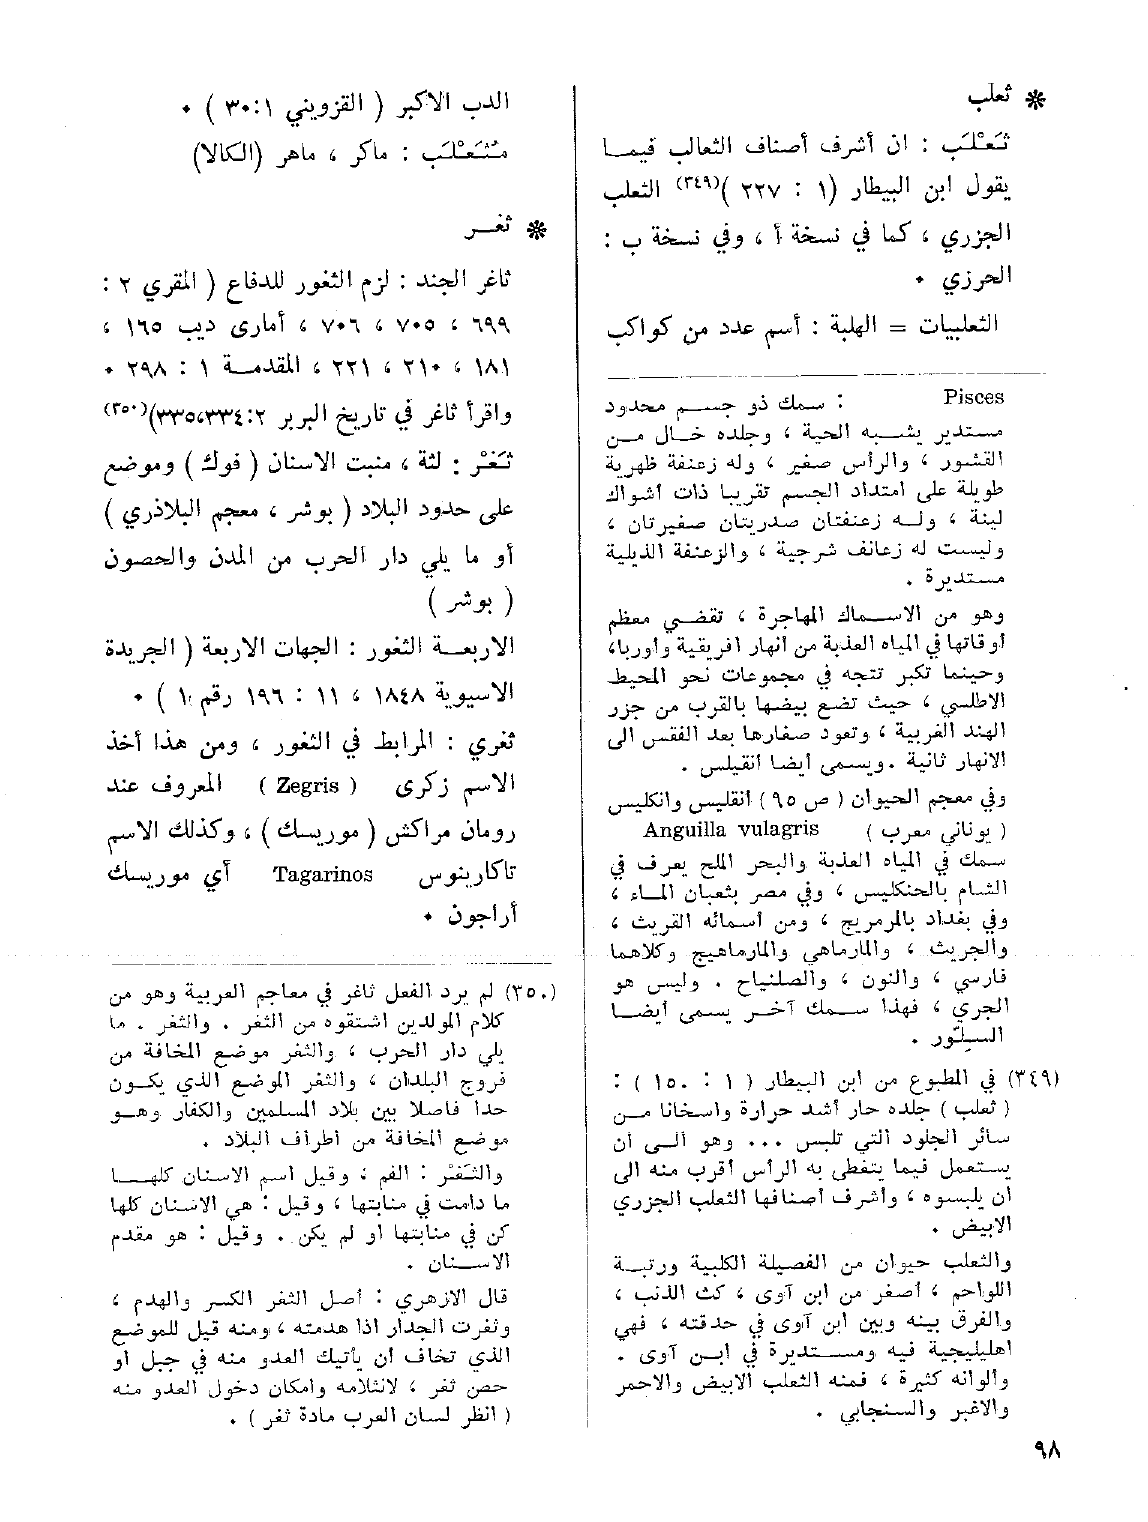 * ثعلب
ثَعْلَب : ان أشرف أصناف الثعالب فيما
يقول ابن البيطار (١ : ٢٢٧ )(٣٤٩) الثعلب
الجزري ، كما في نسخة أ ، وفي نسخة ب :
الحرزي ٠
الثعلبيات = الهلبة : أسم عدد من كواكب
الدب الاكبر ( القزويني ٣٠:١ ) ٠
مُتَعْلَب : ماكر ، ماهر (الكالا)
* ثغر
ثاغر الجند : لزم الثغور للدفاع ( المقري ٢ :
٦٩٩ ، ٧٠٥ ، ٧٠٦ ، أماري ديب ١٦٥ ،
١٨١ ، ٢١٠ ، ٢٢١ ، المقدمة ١ : ٢٩٨ ٠
واقرأ ثاغر في تاريخ البربر ٢:٣٣٤،٣٣٥)(٣٥٠)
ثَغْر : لثة ، منبت الاسنان ( فوك ) وموضع
على حدود البلاد ( بوشر ، معجم البلاذري )
أو ما يلي دار الحرب من المدن والحصون
( بوشر )
الاربعة الثغور : الجهات الاربعة ( الجريدة
الاسيوية ١٨٤٨ ، ١١ : ١٩٦ رقم ١ ) ٠
ثغري : المرابط في الثغور ، ومن هذا أخذ
الاسم زكرى ( Zegris ) المعروف عند
رومان مراكش ( موريسك ) ، وكذلك الاسم
تاكارينوس Tagarinos أي موريسك
أراجون ٠
Pisces : سمك ذو جسم محدود
مستدير يشبه الحية ، وجلده خال من
القشور ، والرأس صغير ، وله زعنفة ظهرية
طويلة على امتداد الجسم تقريبا ذات أشواك
لينة ، وله زعنفتان صدريتان صغيرتان ،
وليست له زعانف شرجية ، والزعنفة الذيلية
مستديرة .
وهو من الاسماك المهاجرة ، تقضي معظم
أوقاتها في المياه العذبة من أنهار افريقية وأوربا،
وحينما تكبر تتجه في مجموعات نحو المحيط
الاطلسي ، حيث تضع بيضها بالقرب من جزر
الهند الغربية ، وتعود صغارها بعد الفقس الى
الانهار ثانية .ويسمى أيضا أنقيلس .
وفي معجم الحيوان ( ص ٩٥ ) أنقليس وانكليس
( يوناني معرب ) Anguilla vulagris
سمك في المياه العذبة والبحر الملح يعرف في
الشام بالحنكليس ، وفي مصر بثعبان الماء ،
وفي بغداد بالمرمريج ، ومن أسمائه القريث ،
والجريث ، والمارماهي والمارماهيج وكلاهما
فارسي ، والنون ، والصلنباح . وليس هو
الجري ، فهذا سمك آخر يسمى أيضا
السلّور .
(٣٤٩) في المطبوع من ابن البيطار ( ١ : ١٥٠ ) :
( ثعلب ) جلده حار أشد حرارة واسخانا من
سائر الجلود التي تلبس ... وهو الى أن
يستعمل فيما يتغطى به الرأس أقرب منه الى
أن يلبسوه ، وأشرف أصنافها الثعلب الجزري
الابيض .
والثعلب حيوان من الفصيلة الكلبية ورتبة
اللواحم ، أصغر من ابن آوى ، كث الذنب ،
والفرق بينه وبين ابن آوى في حدقته ، فهي
اهليليجية فيه ومستديرة في ابن آوى .
والوانه كثيرة ، فمنه الثعلب الابيض والاحمر
والاغبر والسنجابي .
(٣٥٠) لم يرد الفعل ثاغر في معاجم العربية وهو من
كلام المولدين اشتقوه من الثغر . والثغر . ما
يلي دار الحرب ، والثغر موضع المخافة من
فروج البلدان ، والثغر الموضع الذي يكون
حدا فاصلا بين بلاد المسلمين والكفار وهو
موضع المخافة من أطراف البلاد .
والثَّغْر : الفم ، وقيل اسم الاسنان كلها
ما دامت في منابتها ، وقيل : هي الاسنان كلها
كن في منابتها أو لم يكن . وقيل : هو مقدم
الاسنان .
قال الازهري : أصل الثغر الكسر والهدم ،
وثغرت الجدار اذا هدمته ، ومنه قيل للموضع
الذي تخاف أن يأتيك العدو منه في جبل أو
حصن ثغر ، لانثلامه وامكان دخول العدو منه
( انظر لسان العرب مادة ثغر ) .
٩٨